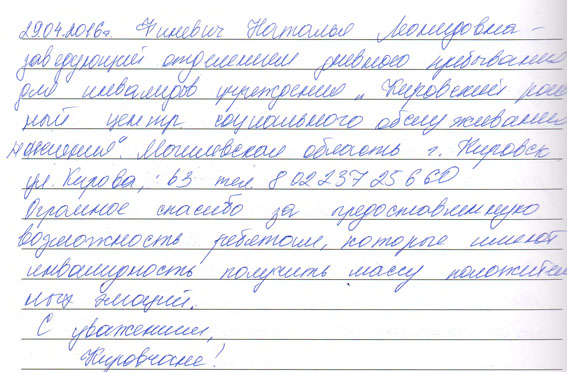 29.04.2016г Чиневич Наталья Леонидовна -
заведующий отделением дневного пребывания
для инвалидов учреждения „Кировский рай
ный центр социального обслуживания
населения". Могилевская область г. Кировск
ул. Кирова, 63 тел 8 02237 25660
Огромное спасибо за предоставленную
возможность ребятам, которые имеют
инвалидность получить массу положител
ных эмоций.
С уважением,
Кировчане!